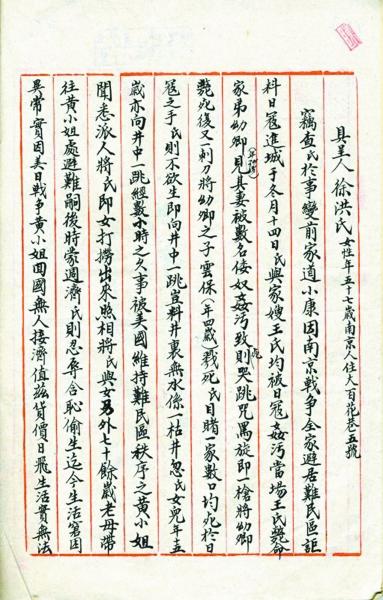 具呈人徐洪氏女性年五十七歲南京人住大百花巷五號
竊查氏於事變前家道小康因南京戰争全家避居難民區詎
料日寇進城于冬月十四日氏與家嫂王氏均被日寇姦污當場王氏斃命
家弟幼卿見其妻被數名倭奴姦污致死則哭跳咒罵旋即一槍將幼卿
斃死後又一刺刀將幼卿之子雲保（年四歲）戮死氏目睹一家數口均死於日
寇之手氏則不欲生即向井中一跳豈料井裏無水係一枯井忽氏女兒年五
歲亦向井中一跳經數小時之久事被美國維持難民區秩序之黄小姐
聞悉派人將氏即女打撈出來照相將氏與女另外七十餘歲老母帶
往黄小姐處避難嗣後時蒙週濟氏則忍辱含恥偷生迄今生活窘困
異常實因美日戰争黄小姐回國無人接濟值兹貨價日飛生活實無法